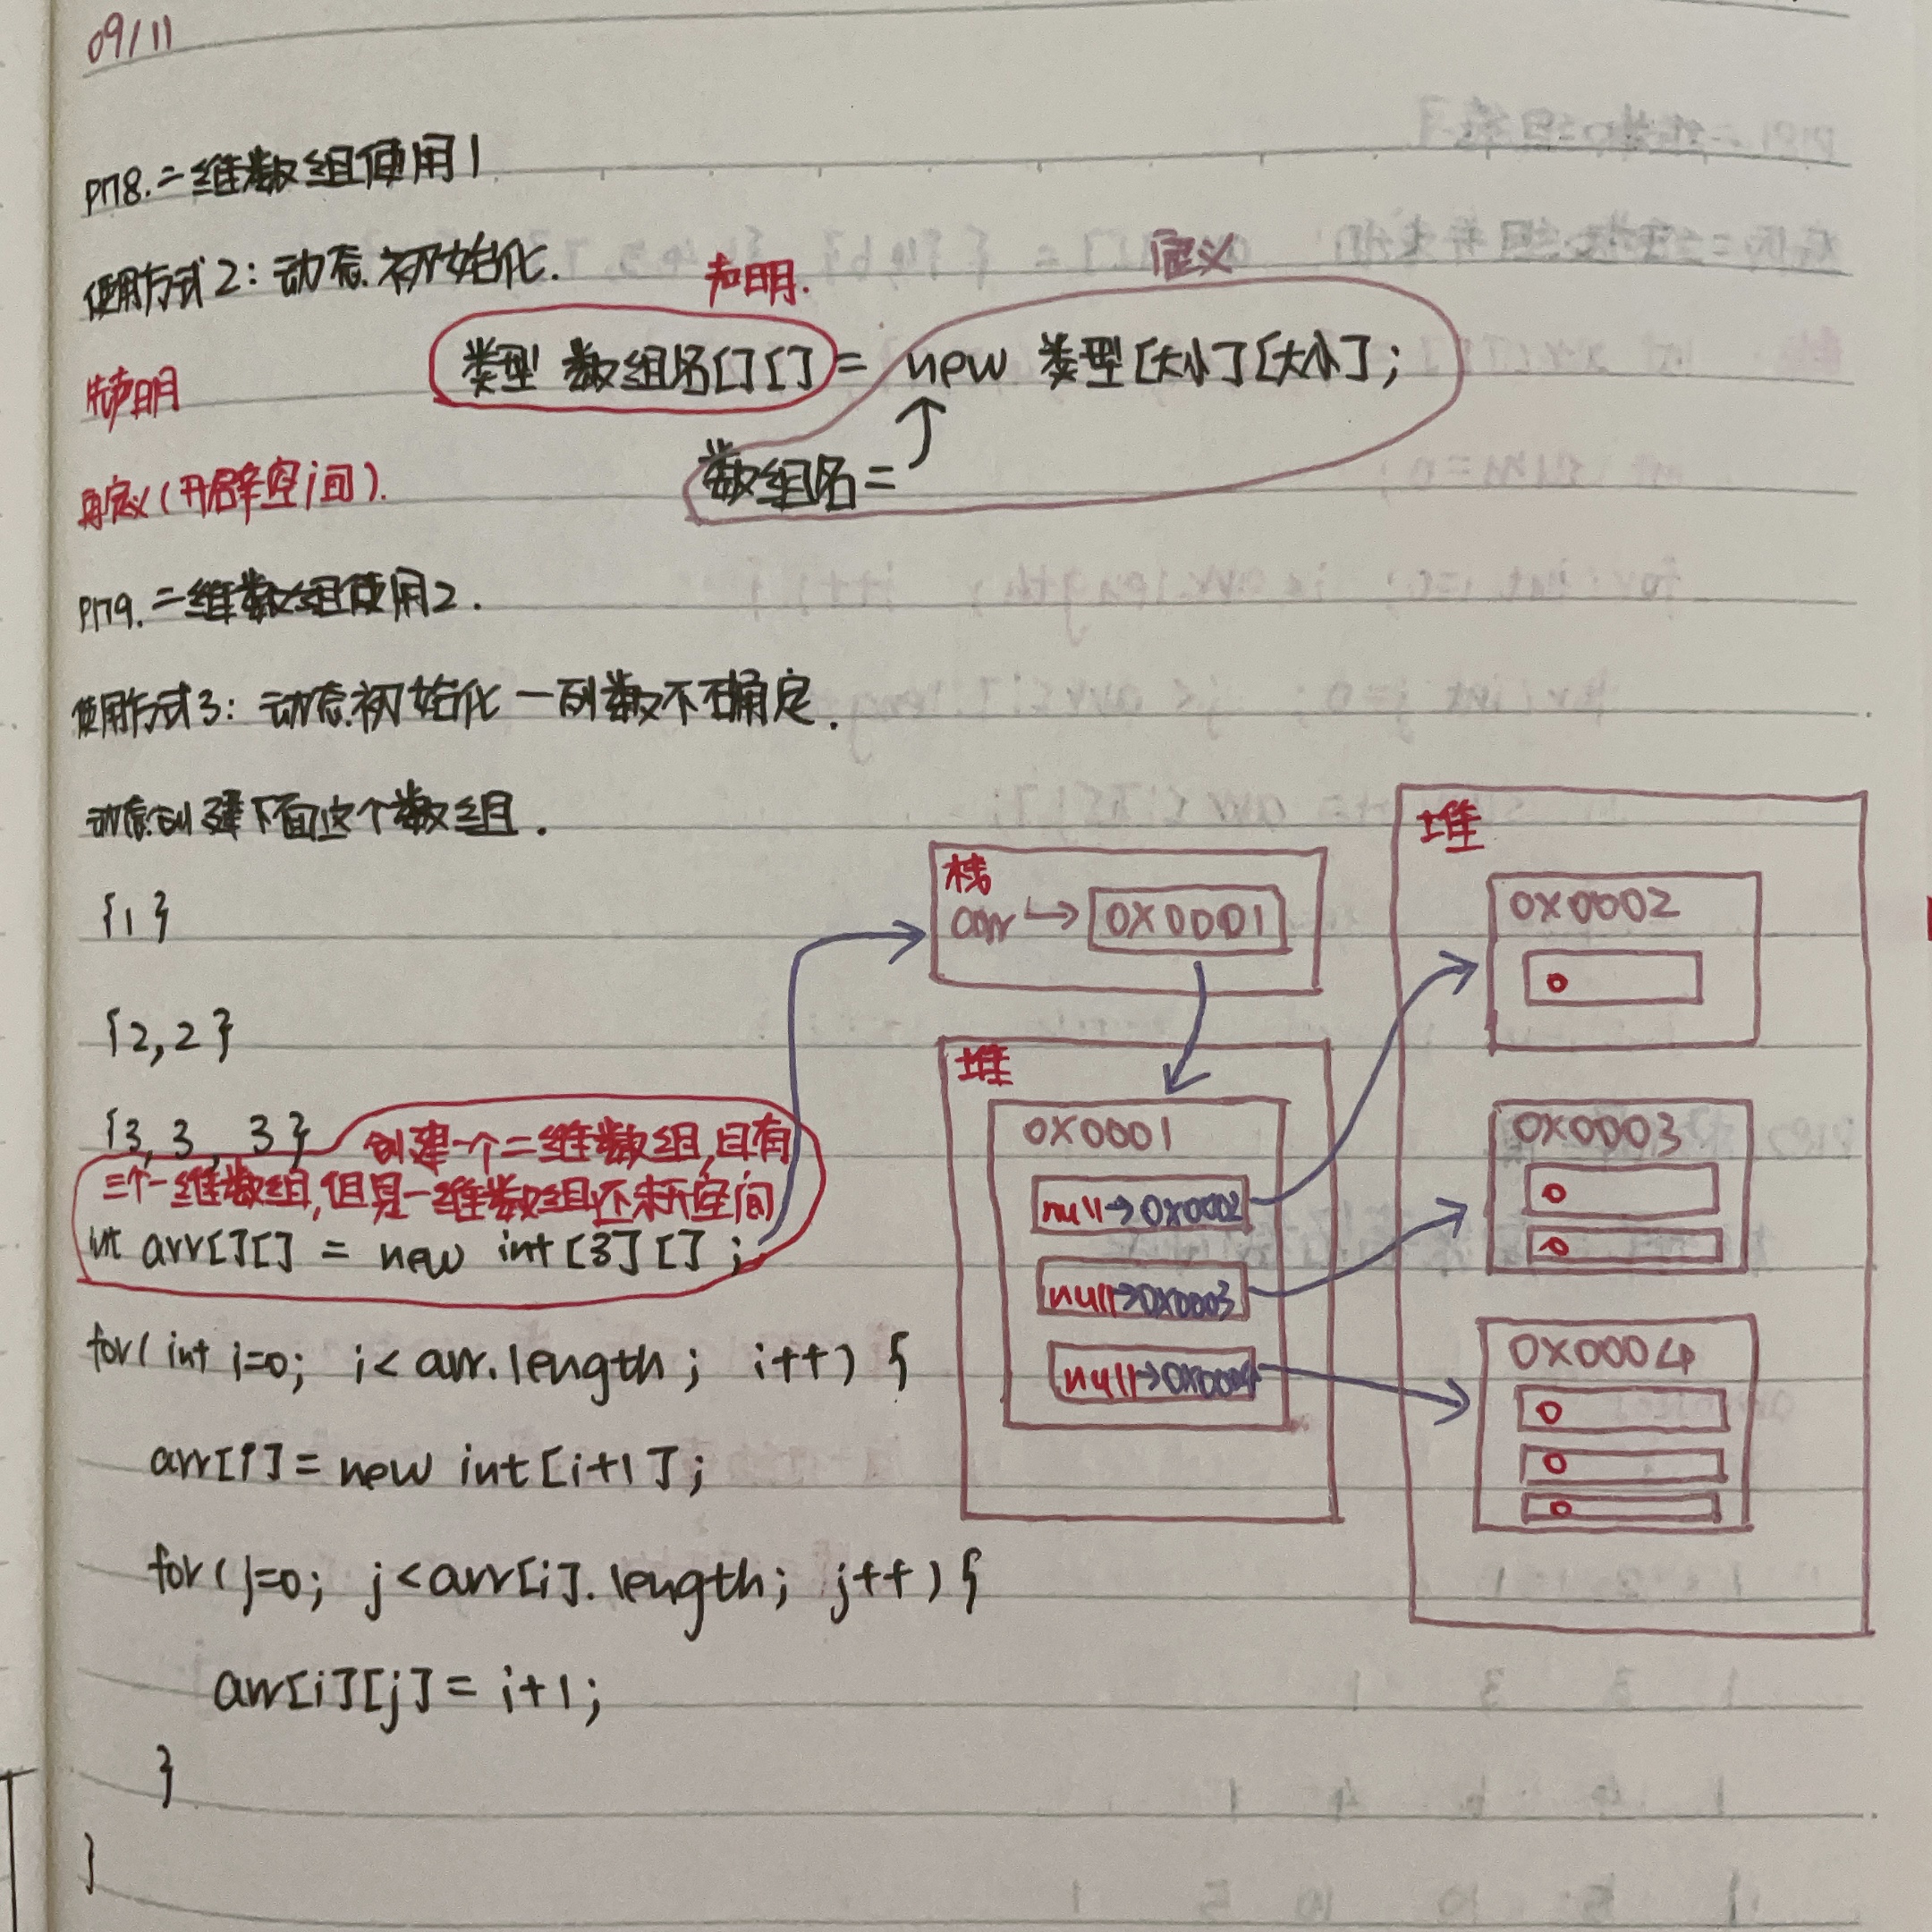 09/11
P178.二维数组使用1
使用方式2:动态初始化.
声明.
定义
类型 数组名[][] = new 类型[大小][大小];
先声明
数组名=
再定义(开辟空间).
P179.二维数组使用2.
使用方式3:动态初始化一列数不确定.
动态创建下面这个数组.
{1}
{2,2}
{3,3,3}
创建一个二维数组,且有
三个一维数组,但是一维数组还未开空间
int arr[][] = new int[3][];
for(int i=0; i<arr.length; i++){
arr[i]=new int[i+1];
for(j=0; j<arr[i].length; j++){
arr[i][j]=i+1;
}
}
栈
arr→0X0001
堆
0X0001
null→0X0002
null→0X0003
null→0X0004
堆
0X0002
0
0X0003
0
0
0X0004
0
0
0